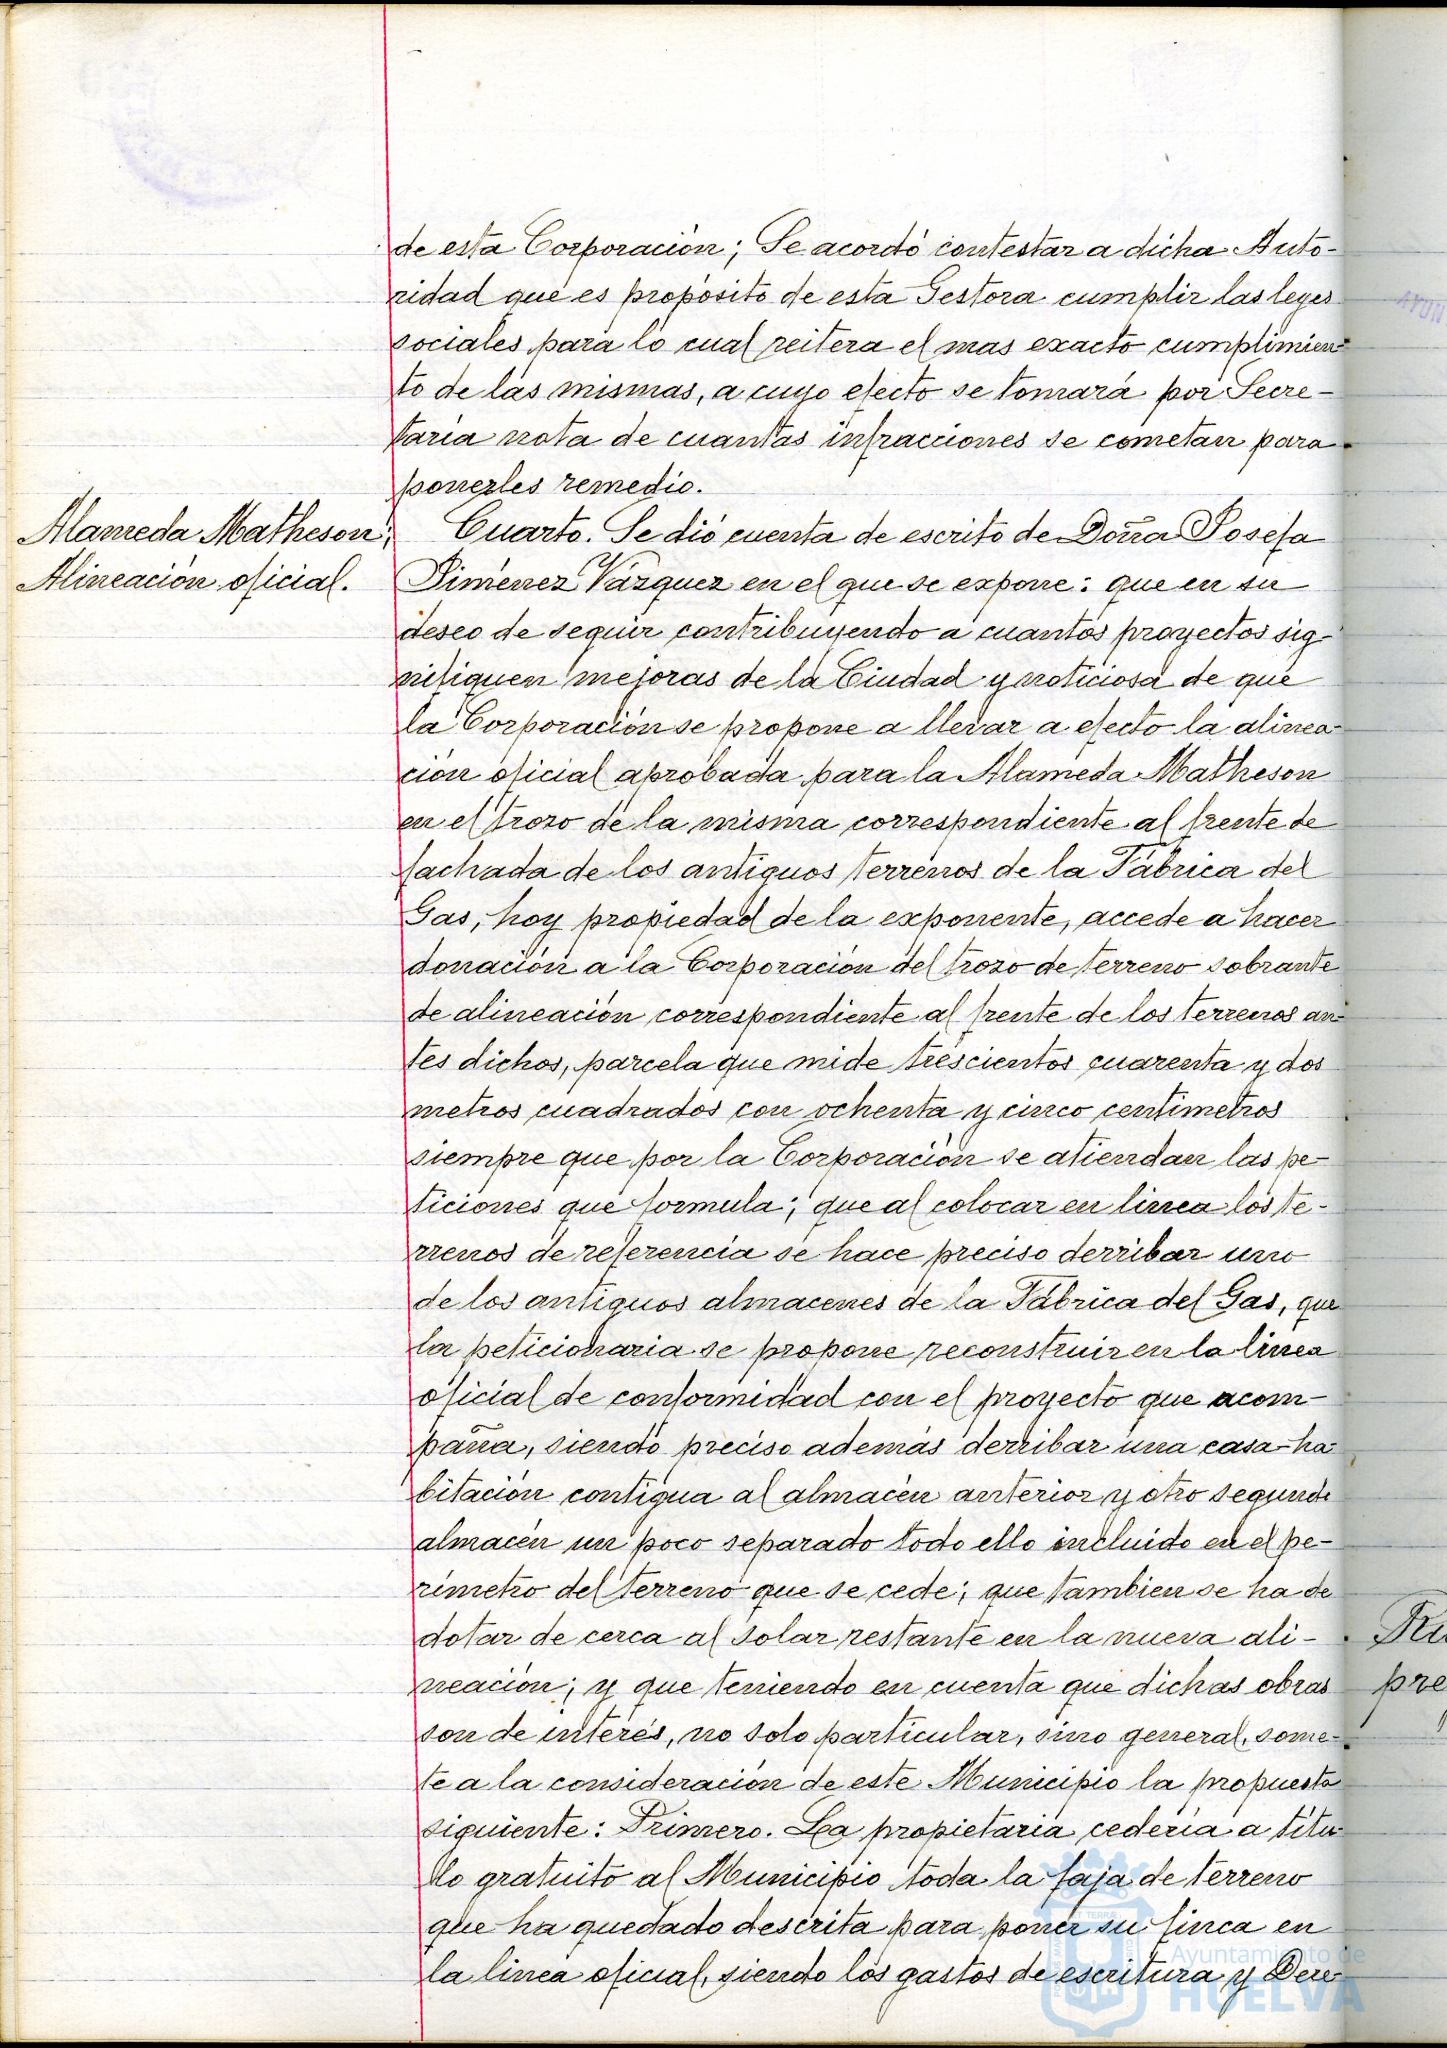 de esta Corporación; Se acordó contestar a dicha Auto-
ridad que es propósito de esta Gestora cumplir las leyes
sociales para lo cual reitera el mas exacto cumplimien-
to de las mismas, a cuyo efecto se tomará por Secre-
taría nota de cuantas infracciones se cometan para
ponerles remedio.
Alameda Matheson;
Alineación oficial.
Cuarto. Se dió cuenta de escrito de Doña Josefa
Jiménez Vázquez en el que se expone: que en su
deseo de seguir contribuyendo a cuantos proyectos sig-
nifiquen mejoras de la Ciudad y noticiosa de que
la Corporación se propone a llevar a efecto la alinea-
ción oficial aprobada para la Alameda Matheson
en el trozo de la misma correspondiente al frente de
fachada de los antiguos terrenos de la Fábrica del
Gas, hoy propiedad de la exponente, accede a hacer
donación a la Corporación del trozo de terreno sobrante
de alineación correspondiente al frente de los terrenos an-
tes dichos, parcela que mide trescientos cuarenta y dos
metros cuadrados con ochenta y cinco centímetros
siempre que por la Corporación se atiendan las pe-
ticiones que formula; que al colocar en línea los te-
rrenos de referencia se hace preciso derribar uno
de los antiguos almacenes de la Fábrica del Gas, que
la peticionaria se propone reconstruir en la línea
oficial de conformidad con el proyecto que acom-
paña, siendo preciso además derribar una casa-ha-
bitación contigua al almacén anterior y otro segundo
almacén un poco separado todo ello incluido en el pe-
rímetro del terreno que se cede; que tambien se ha de
dotar de cerca al solar restante en la nueva ali-
neación; y que teniendo en cuenta que dichas obras
son de interés, no solo particular, sino general, some-
te a la consideración de este Municipio la propuesta
siguiente: Primero. La propietaria cedería a títu-
lo gratuito al Municipio toda la faja de terreno
que ha quedado descrita para poner su finca en
la línea oficial, siendo los gastos de escritura y Dere-
pre
Ayuntamiento de
HUELVA